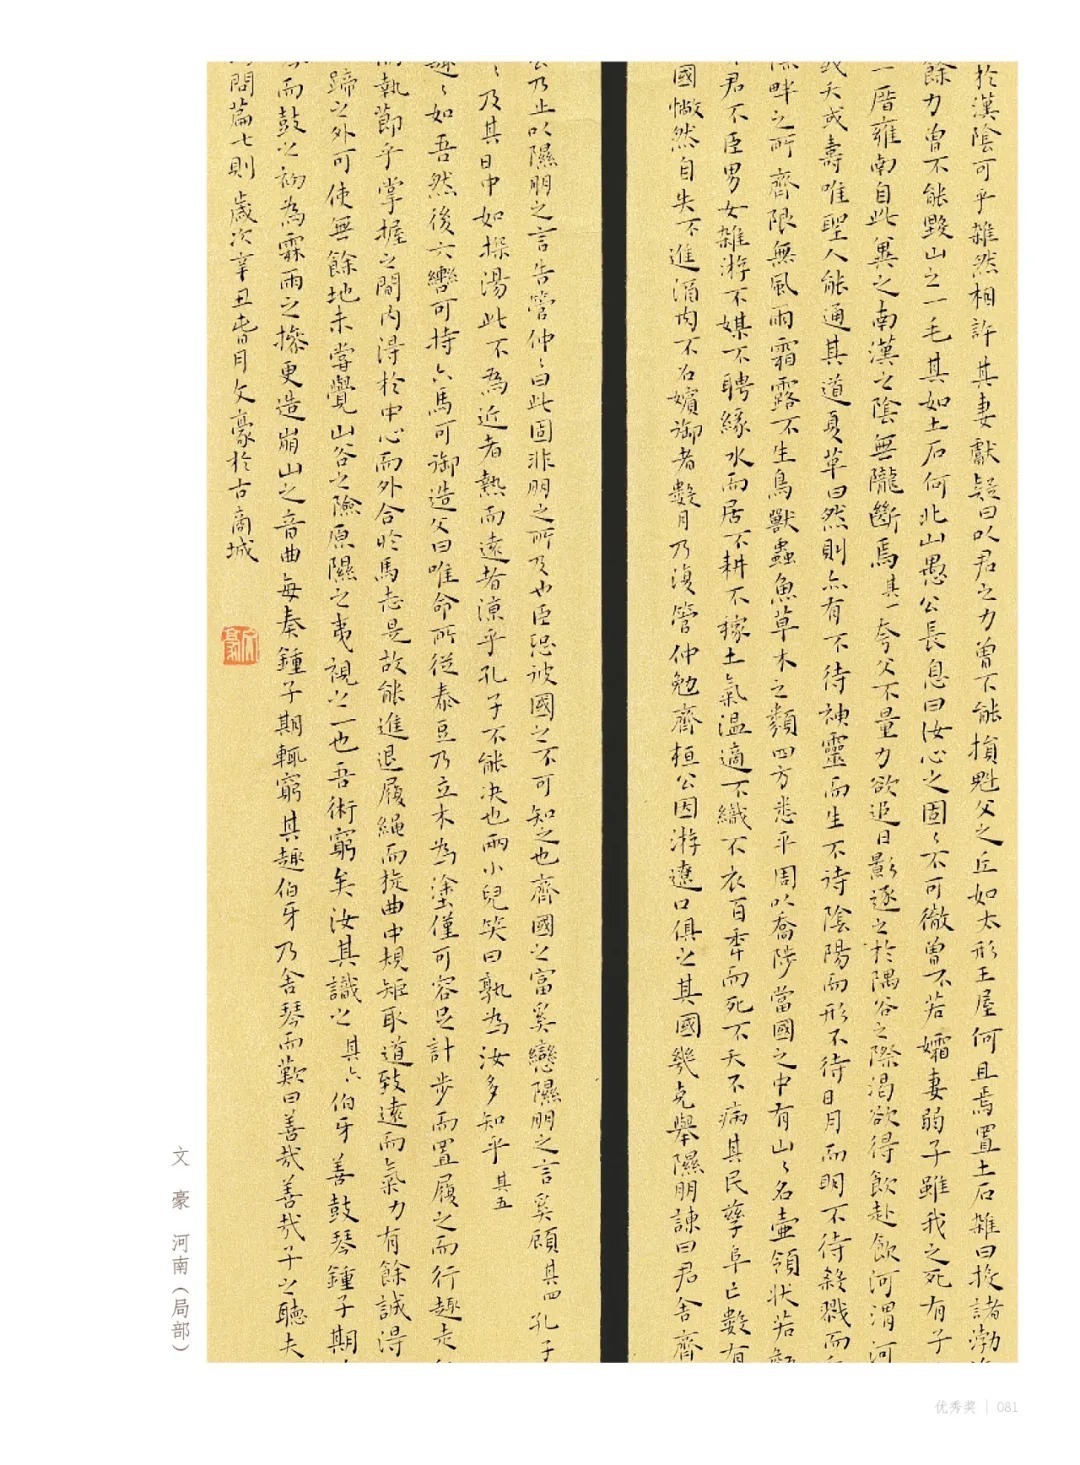 於漢陰可乎雜然相許其妻獻疑曰以君之力曾不能損魁父之丘如太形王屋何且焉置土石雜曰投諸渤
餘力曾不能毀山之一毛其如土石何北山愚公長息曰汝心之固〻不可徹曾不若孀妻弱子雖我之死有子
一厝雍南自此冀之南漢之陰無隴斷焉其一夸父不量力欲追日影逐之於隅谷之際渴欲得飲赴飲河渭河
或夭或壽唯聖人能通其道夏革曰然則亦有不待神靈而生不待陰陽而形不待日月而明不待殺戮而
畔之所齊限無風雨霜露不生鳥獸蟲魚草木之類四方悉平周以喬陟當國之中有山〻名壺領狀若
君不臣男女雜游不媒不聘緣水而居不耕不稼土氣溫適不織不衣百年而死不夭不病其民孳阜亡數有
國慨然自失不進酒肉不召嬪御者數月乃復管仲勉齊桓公因游遼口俱之其國幾克舉隰朋諫曰君舍齊
公乃止以隰朋之言告管仲〻曰此固非朋之所及也臣恐彼國之不可知之也齊國之富奚戀隰朋之言奚顧其四孔子
〻及其日中如探湯此不為近者熱而遠者涼乎孔子不能決也兩小兒笑曰孰為汝多知乎其五
趣〻如吾然後六轡可持六馬可御造父曰唯命所從泰豆乃立木為塗僅可容足計步而置履之而行趣走
執節乎掌握之間內得於中心而外合於馬志是故能進退履繩而旋曲中規矩取道致遠而氣力有餘誠得
蹄之外可使無餘地未嘗覺山谷之險原隰之夷視之一也吾術窮矣汝其識之其六伯牙善鼓琴鍾子期
而鼓之初為霖雨之操更造崩山之音曲每奏鍾子期輒窮其趣伯牙乃舍琴而歎曰善哉善哉子之聽夫
問篇七則歲次辛丑春月文豪於古商城
文豪
文豪 河南（局部）
优秀奖 | 081